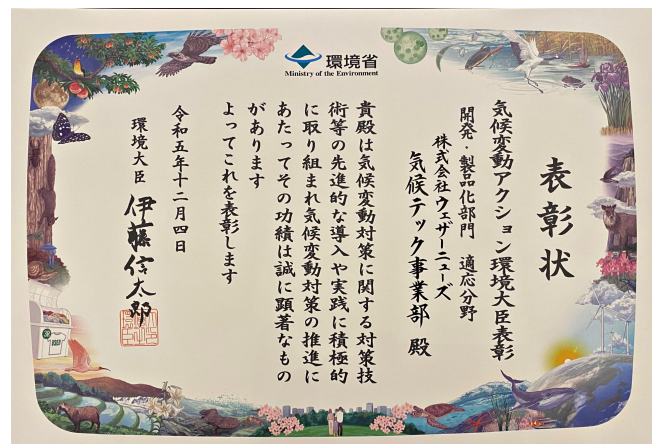 環境省
Ministry of the Environment
表彰状
気候変動アクション環境大臣表彰
開発・製品化部門　適応分野
株式会社ウェザーニューズ
気候テック事業部 殿
貴殿は気候変動対策に関する対策技
術等の先進的な導入や実践に積極的
に取り組まれ気候変動対策の推進に
あたってその功績は誠に顕著なもの
があります
よってこれを表彰します
令和五年十二月四日
環境大臣 伊藤信太郎